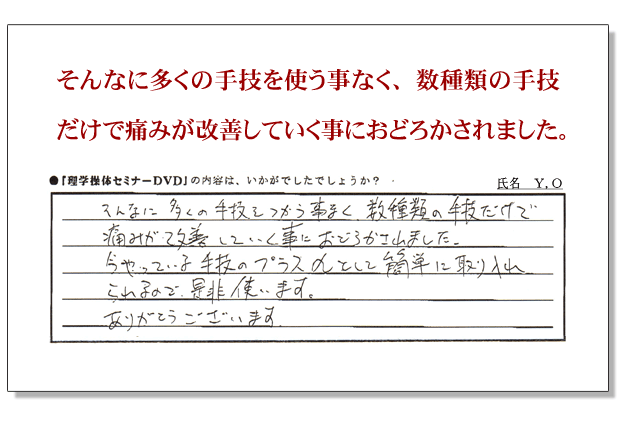 そんなに多くの手技を使う事なく、数種類の手技
だけで痛みが改善していく事におどろかされました。
●『理学操体セミナーDVD』の内容は、いかがでしたでしょうか?
氏名 Y,O
そんなに多くの手技をつかう事なく、数種類の手技だけで
痛みが改善していく事におどろかされました。
今やっている手技のプラスαとして簡単に取り入れ
られるので、是非使います。
ありがとうございます。